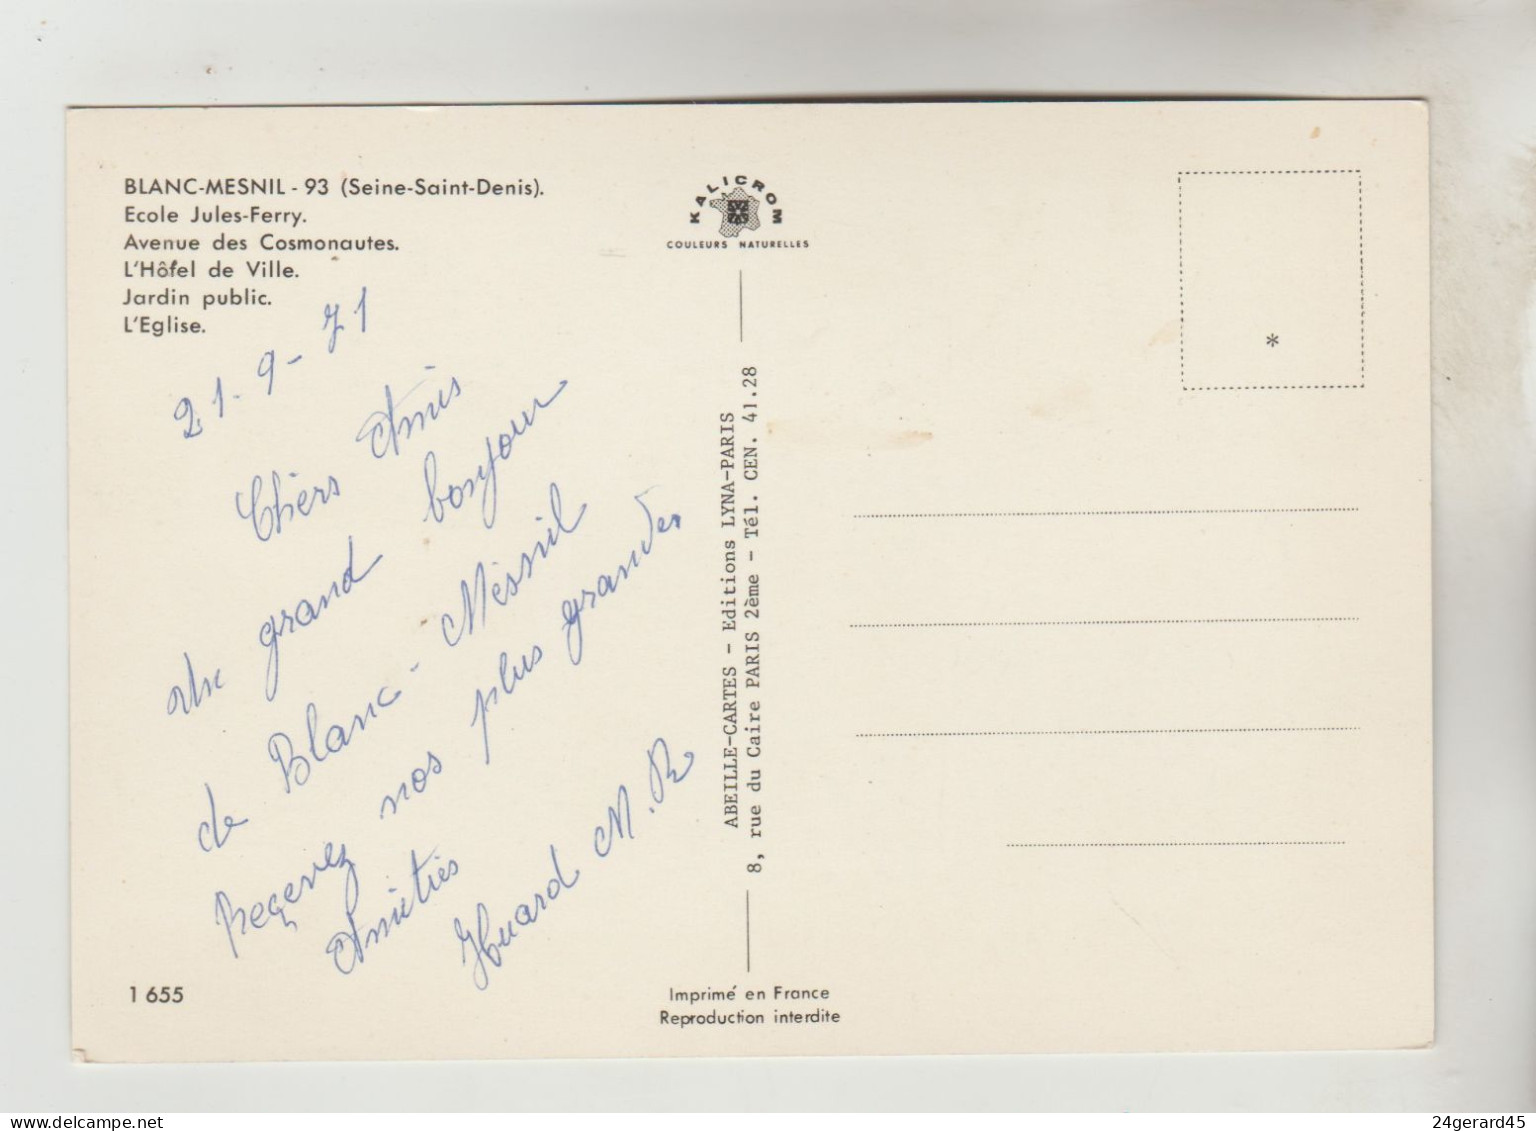 BLANC-MESNIL - 93 (Seine-Saint-Denis).
Ecole Jules-Ferry.
Avenue des Cosmonautes.
L'Hôtel de Ville.
Jardin public.
L'Eglise.
21-9-71
Chèrs Amis
Un grand bonjour
de Blanc-Mésnil
Reçevez nos plus grandes
Amitiés
Huard M.R
1 655
KALICROM
COULEURS NATURELLES
ABEILLE-CARTES - Editions LYNA-PARIS
8, rue du Caire PARIS 2ème - Tél. CEN. 41.28
Imprimé en France
Reproduction interdite
*
delcampe.net
24gerard45